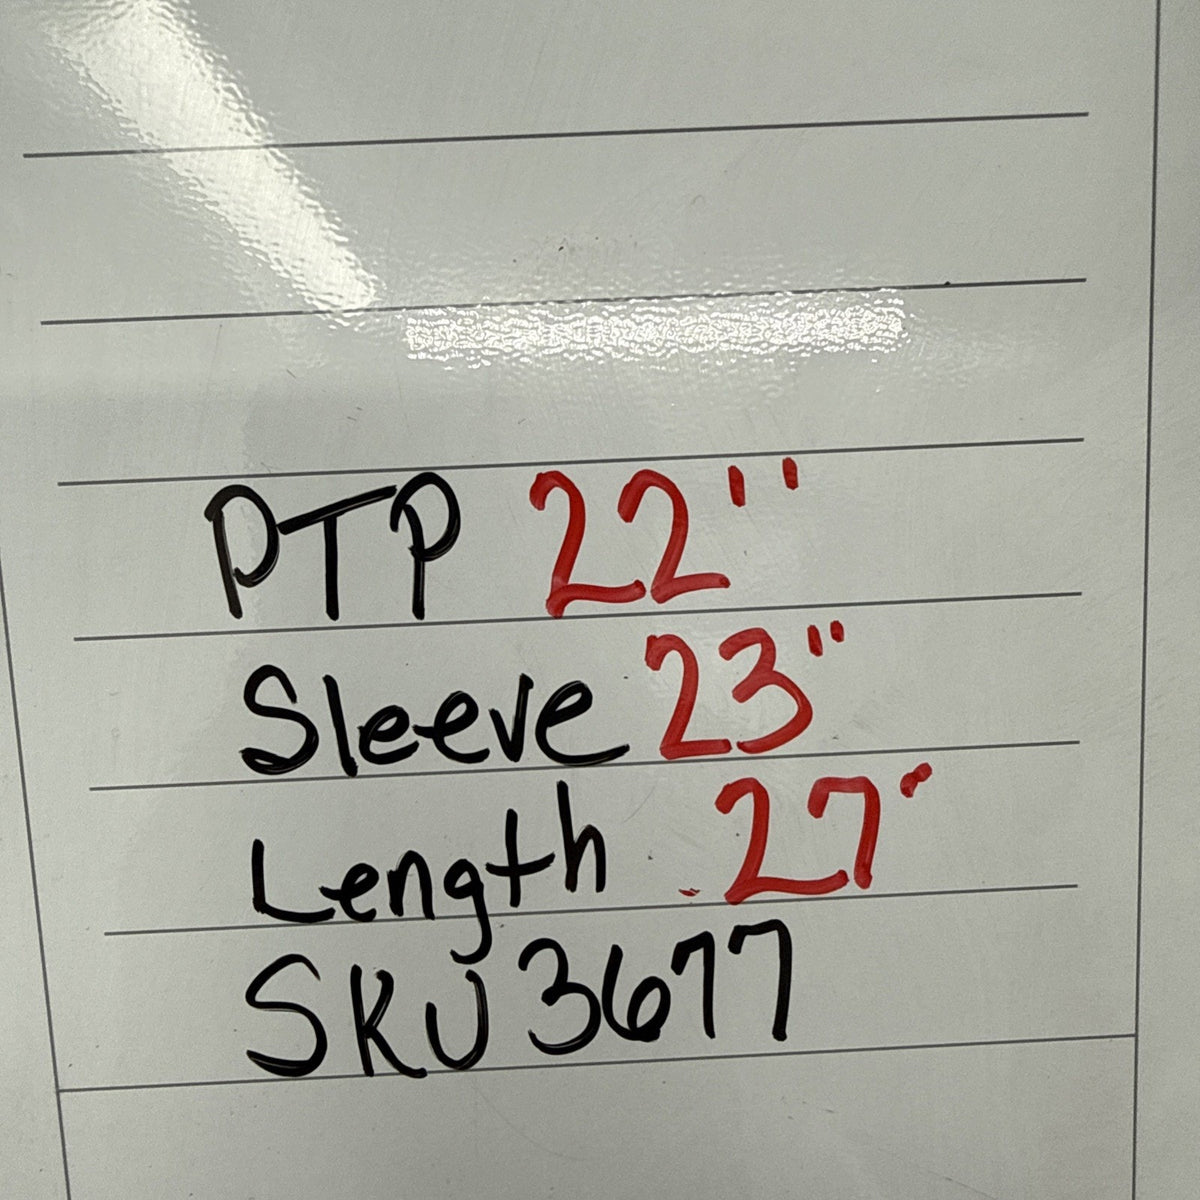 PTP 22"
Sleeve 23"
Length 27"
SKU 3677